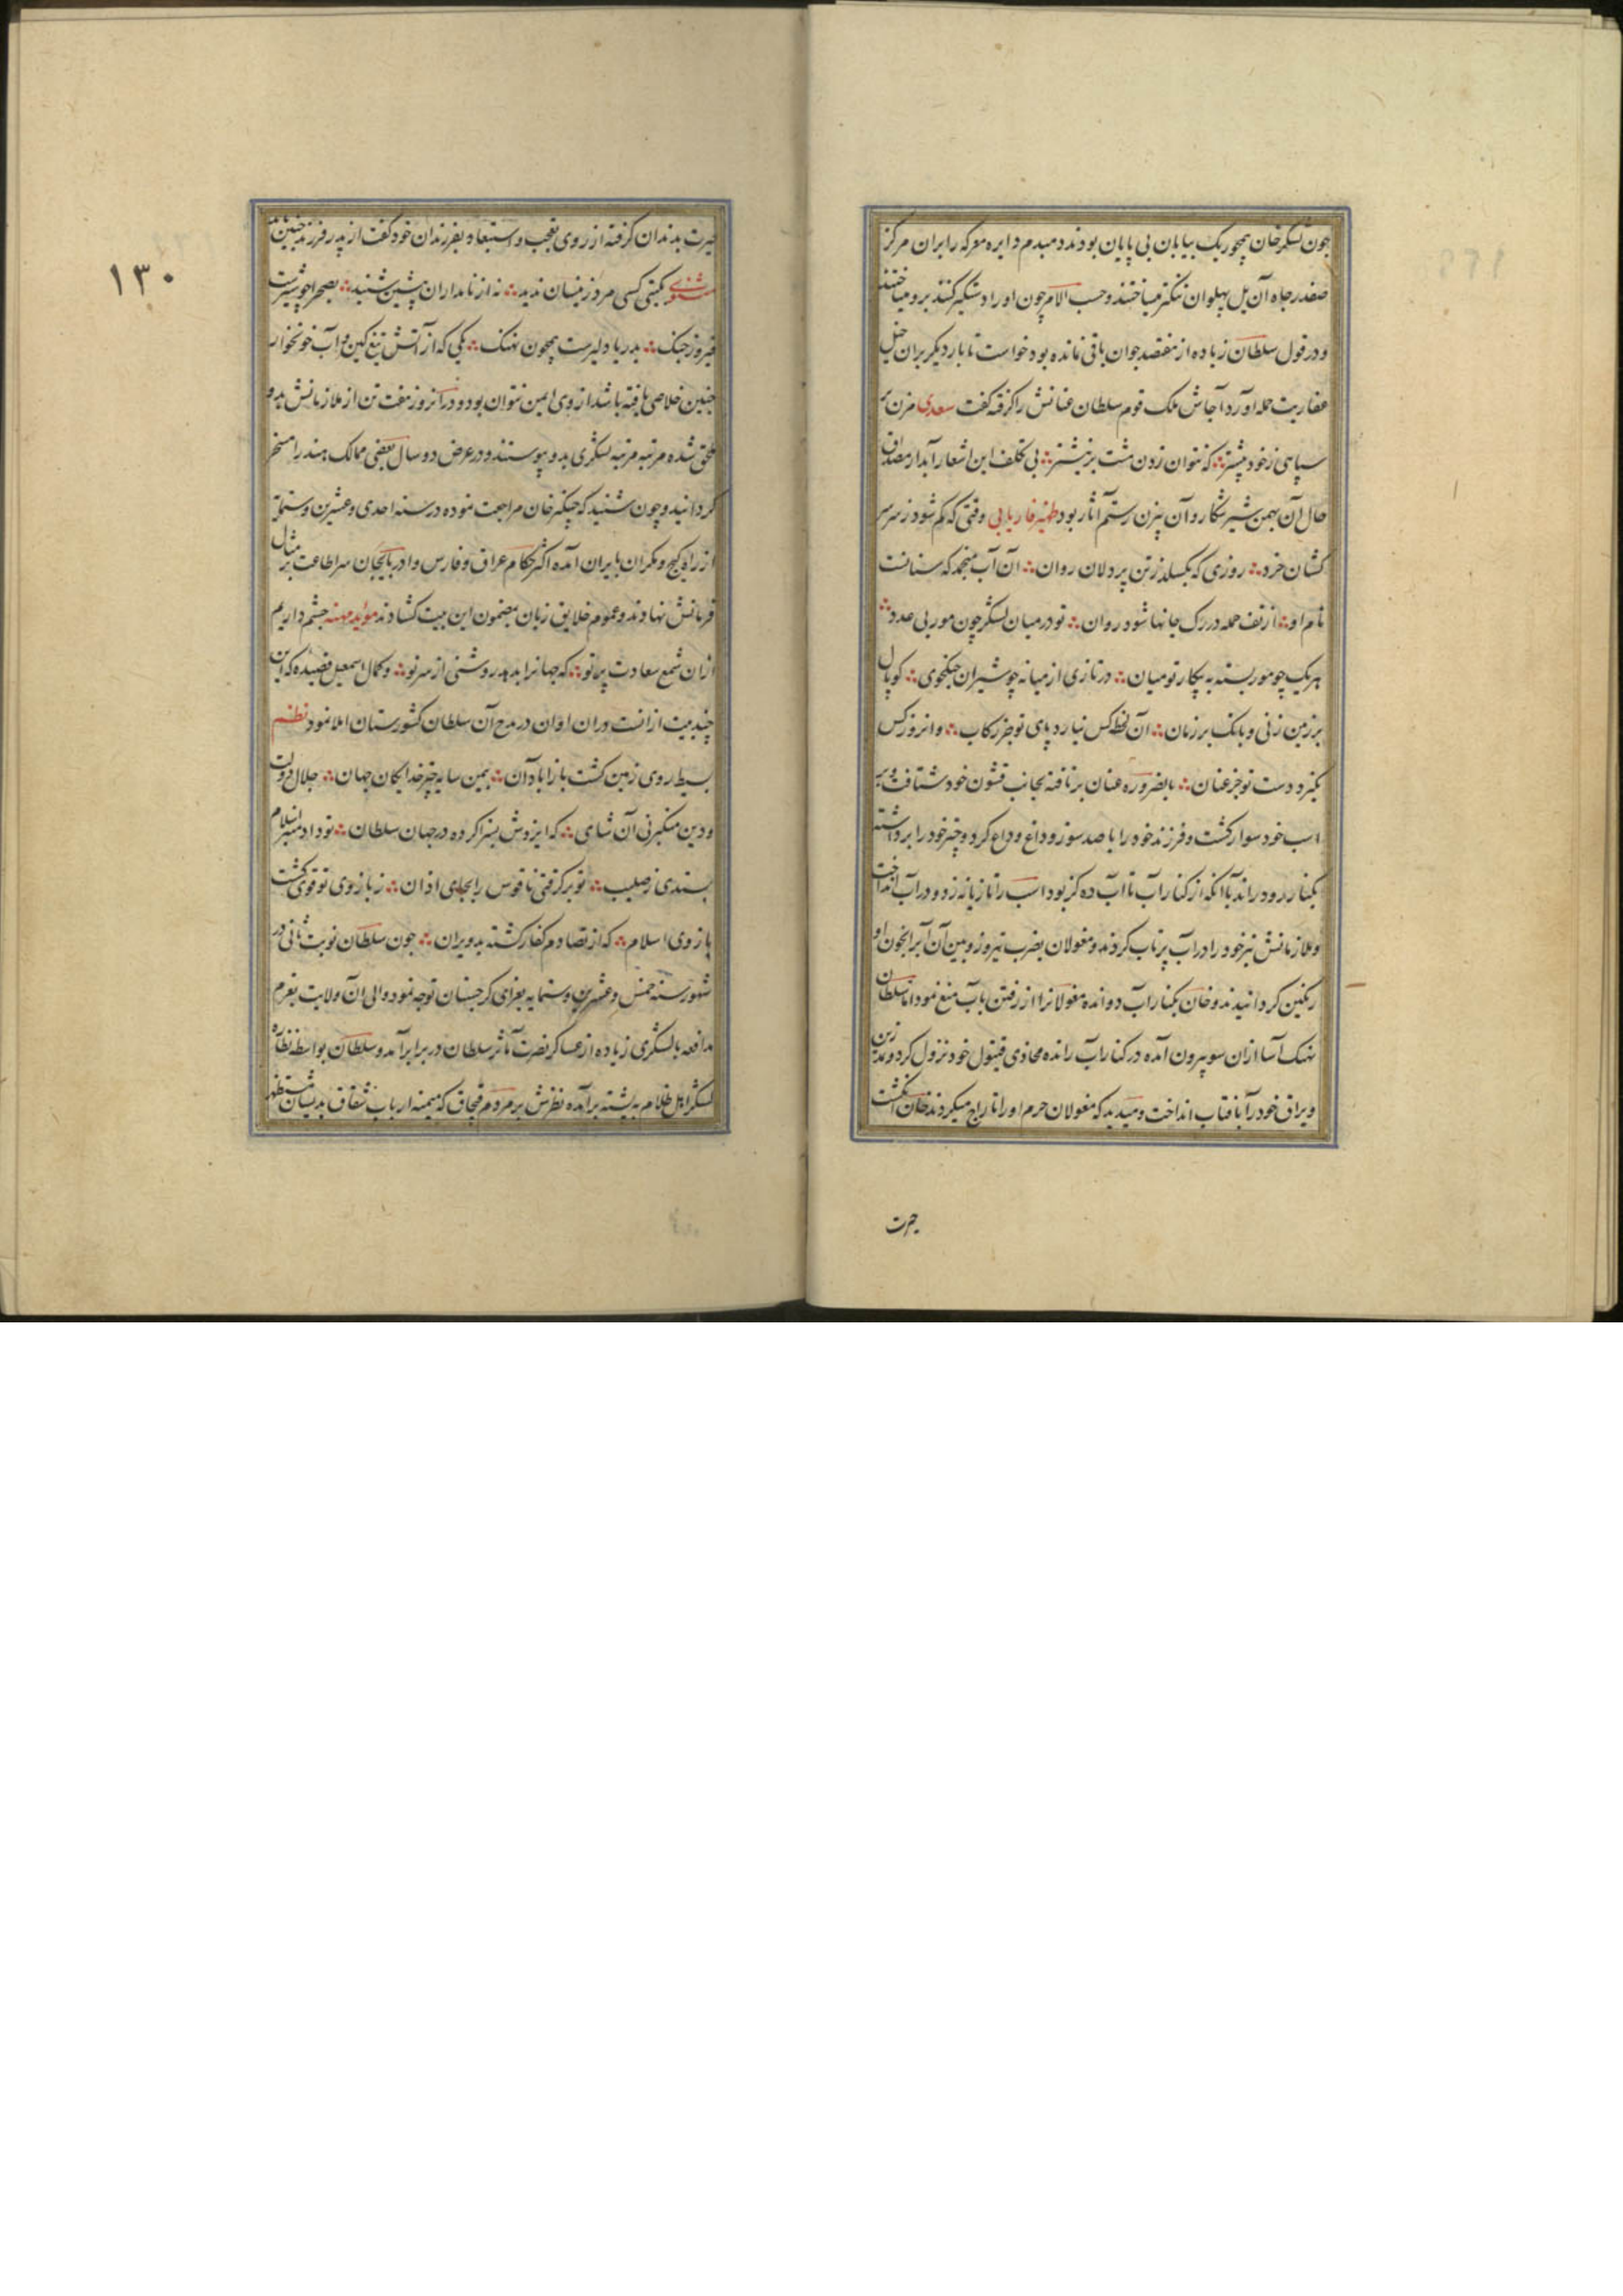 چون لشکر خان همچو ریک بیابان بی پایان بودند دمبدم دایره معرکه را بران مرکز
صفدر جاه آن یل پهلوان تنکتر میساختند و حسب الامر چون او را دستکیر کنند برو میتاختند
و در قول سلطان زیاده از هفتصد جوان باقی نمانده بود خواست تا بار دیکر بران خیل
عفاریت حمله اورد آجاش ملک قوم سلطان عنانش را کرفته کفت سعدی مزن بر
سپاهی ز خود پیشتر ∴ که نتوان زدن مشت بر نیشتر ∴ بی تکلف این اشعار آبدار مصداق
حال آن بهمن شیر شکار و آن بیژن رستم آثار بود ظهیر فاریابی وقتی که کم شود ز سر سر
کشان خرد ∴ روزی که بکسلد ز تن پر دلان روان ∴ آن آب منجمد که سنانست
نام او ∴ از تف حمله در رک جانها شود روان ∴ تو در میان لشکر چون مور بی عدد ∴
هر یک چو مور بسته به پیکار تو میان ∴ در تازی از میانه چو شیران جنکجوی ∴ کوپال
بر زمین زنی و بانک بر زمان ∴ آن لحظه کس نیارد پای تو جز رکاب ∴ وانروز کس
نکیرد دست تو جز عنان ∴ بالضروره عنان بر تافته بجانب قشون خود شتافت و بر
اسب خود سوار کشت و فرزند خود را با صد سوز و داغ وداع کرد و چتر خود را برداشته
بکنار رود راند با آنکه از کنار آب تا آب ده کز بود اسب را تازیانه زد و در آب انداخت
و ملازمانش نیز خود را در آب پرتاب کردند و مغولان بضرب تیر روز وبین آن آب را بخون او
رنکین کردانیدند و خان بکنار آب دوانده مغولانرا از رفتن بآب منع نمود اما سلطان
نهنک آسا ازان سو بیرون آمده در کنار آب رانده محاذی قیتول خود نزول کرد و نمد زین
و یراق خود را بآفتاب انداخت و میدید که مغولان حرم او را تاراج میکردند خان انکشت
حیرت
۱۳۰
حیرت بدندان کرفته از روی تعجب و استبعاد بفرزندان خود کفت از پدر فرزند چنین باید
مثنوی بکیتی کسی مرد زینسان ندید ∴ نه از نامداران پیشین شنید ∴ بصحرا چو شیرست
فیروز جنک ∴ بدریا دلیرست همچون نهنک ∴ یکی که از آتش تیغ کین و آب خونخوار
چنین خلاصی یافته باشد از وی ایمن نتوان بود و در انروز هفت تن از ملازمانش بدو
ملحق شده مرتبه مرتبه لشکری بدو پیوستند و در عرض دو سال بعضی ممالک هند را مسخر
کردانید و چون شنید که چنکیز خان مراجعت نموده در سنه احدی و عشرین و ستمایه
از راه کیج و مکران بایران آمده اکثر حکام عراق و فارس و ادربایجان سر اطاعت بر مثال
فرمانش نهادند و عموم خلایق زبان بمضمون این بیت کشادند موید مهنه چشم داریم
ازان شمع سعادت پرتو ∴ که جهانرا بدهد روشنی از سر نو ∴ و کمال اسمعیل قصیده که این
چند بیت ازانست دران اوان در مدح آن سلطان کشورستان املا نمود نظم
بسیط روی زمین کشت باز ابادان ∴ بیمن سایه چتر خدایکان جهان ∴ جلال دولت
و دین منکبرنی آن شاهی ∴ که ایزدش بسزا کرده در جهان سلطان ∴ تو داد منبر اسلام
بستدی ز صلیب ∴ تو بر کرفتی ناقوس را بجای اذان ∴ ز بازوی تو قوی کشت
بازوی اسلام ∴ که از تصادم کفار کشته بد ویران ∴ چون سلطان نوبت ثانی در
شهور سنه خمس و عشرین و ستمایه بغزای کرجستان توجه نمود والی آن ولایت بعزم
مدافعه با لشکری زیاده از عساکر نصرت مآثر سلطان در برابر آمد و سلطان بواسطه نظاره
لشکر اهل ظلام به پشته برآمده نظرش بر مردم قبچاق که میمنه ارباب شقاق بدیشان مستظهر